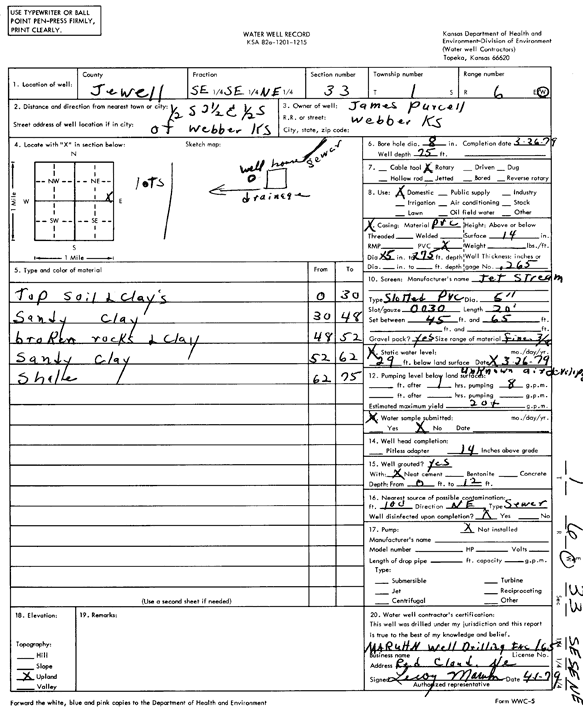 USE TYPEWRITER OR BALL
POINT PEN-PRESS FIRMLY,
PRINT CLEARLY.
WATER WELL RECORD
KSA 82a-1201-1215
Kansas Department of Health and
Environment-Division of Environment
(Water well Contractors)
Topeka, Kansas 66620
1. Location of well: County Jewell Fraction SE 1/4 SE 1/4 NE 1/4 Section number 33 Township number T 1 S Range number R 6 E/W
2. Distance and direction from nearest town or city: 1/2 S 2 1/2 E 1/2 S
Street address of well location if in city: of Webber KS
3. Owner of well: James Purcell
R.R. or street: Webber KS
City, state, zip code:
4. Locate with "X" in section below:
N
NW NE
W X E
SW SE
S
1 Mile
1 Mile
Sketch map:
lots
well house
sewer
drainage
5. Type and color of material From To
Top soil & clay's 0 30
Sandy clay 30 48
broken rocks & clay 48 52
Sandy clay 52 62
Shale 62 75
(Use a second sheet if needed)
6. Bore hole dia. 8 in. Completion date 3-26-79
Well depth 75 ft.
7. Cable tool X Rotary Driven Dug
Hollow rod Jetted Bored Reverse rotary
8. Use: X Domestic Public supply Industry
Irrigation Air conditioning Stock
Lawn Oil field water Other
X Casing: Material PVC Height: Above or below
Threaded Welded Surface 14 in.
RMP PVC X Weight lbs./ft.
Dia. X5 in. to 75 ft. depth Wall Thickness: inches or
Dia. in. to ft. depth gage No. .265
10. Screen: Manufacturer's name Jet Stream
Type Slotted PVC Dia. 6"
Slot/gauze 0030 Length 20'
Set between 45 ft. and 65 ft.
ft. and ft.
Gravel pack? yes Size range of material Fine 3/8
X Static water level: mo./day/yr.
29 ft. below land surface Date X 3-26-79
12. Pumping level below land surface: unknown air develop
ft. after 1 hrs. pumping 8 g.p.m.
ft. after hrs. pumping g.p.m.
Estimated maximum yield 20+ g.p.m.
X Water sample submitted: mo./day/yr.
Yes X No Date
14. Well head completion:
Pitless adapter 14 Inches above grade
15. Well grouted? yes
With: X Neat cement Bentonite Concrete
Depth: From 0 ft. to 12 ft.
16. Nearest source of possible contamination:
ft. 100 Direction NE Type Sewer
Well disinfected upon completion? X Yes No
17. Pump: X Not installed
Manufacturer's name
Model number HP Volts
Length of drop pipe ft. capacity g.p.m.
Type:
Submersible Turbine
Jet Reciprocating
Centrifugal Other
18. Elevation:
Topography:
Hill
Slope
X Upland
Valley
19. Remarks:
20. Water well contractor's certification:
This well was drilled under my jurisdiction and this report
is true to the best of my knowledge and belief.
MARUHN Well Drilling Inc 165
Business name License No.
Address Red Cloud, Ne
Signed Leroy Maruhn Date 4-1-79
Authorized representative
1 6 W 33 SE SE NE
Forward the white, blue and pink copies to the Department of Health and Environment
Form WWC-5